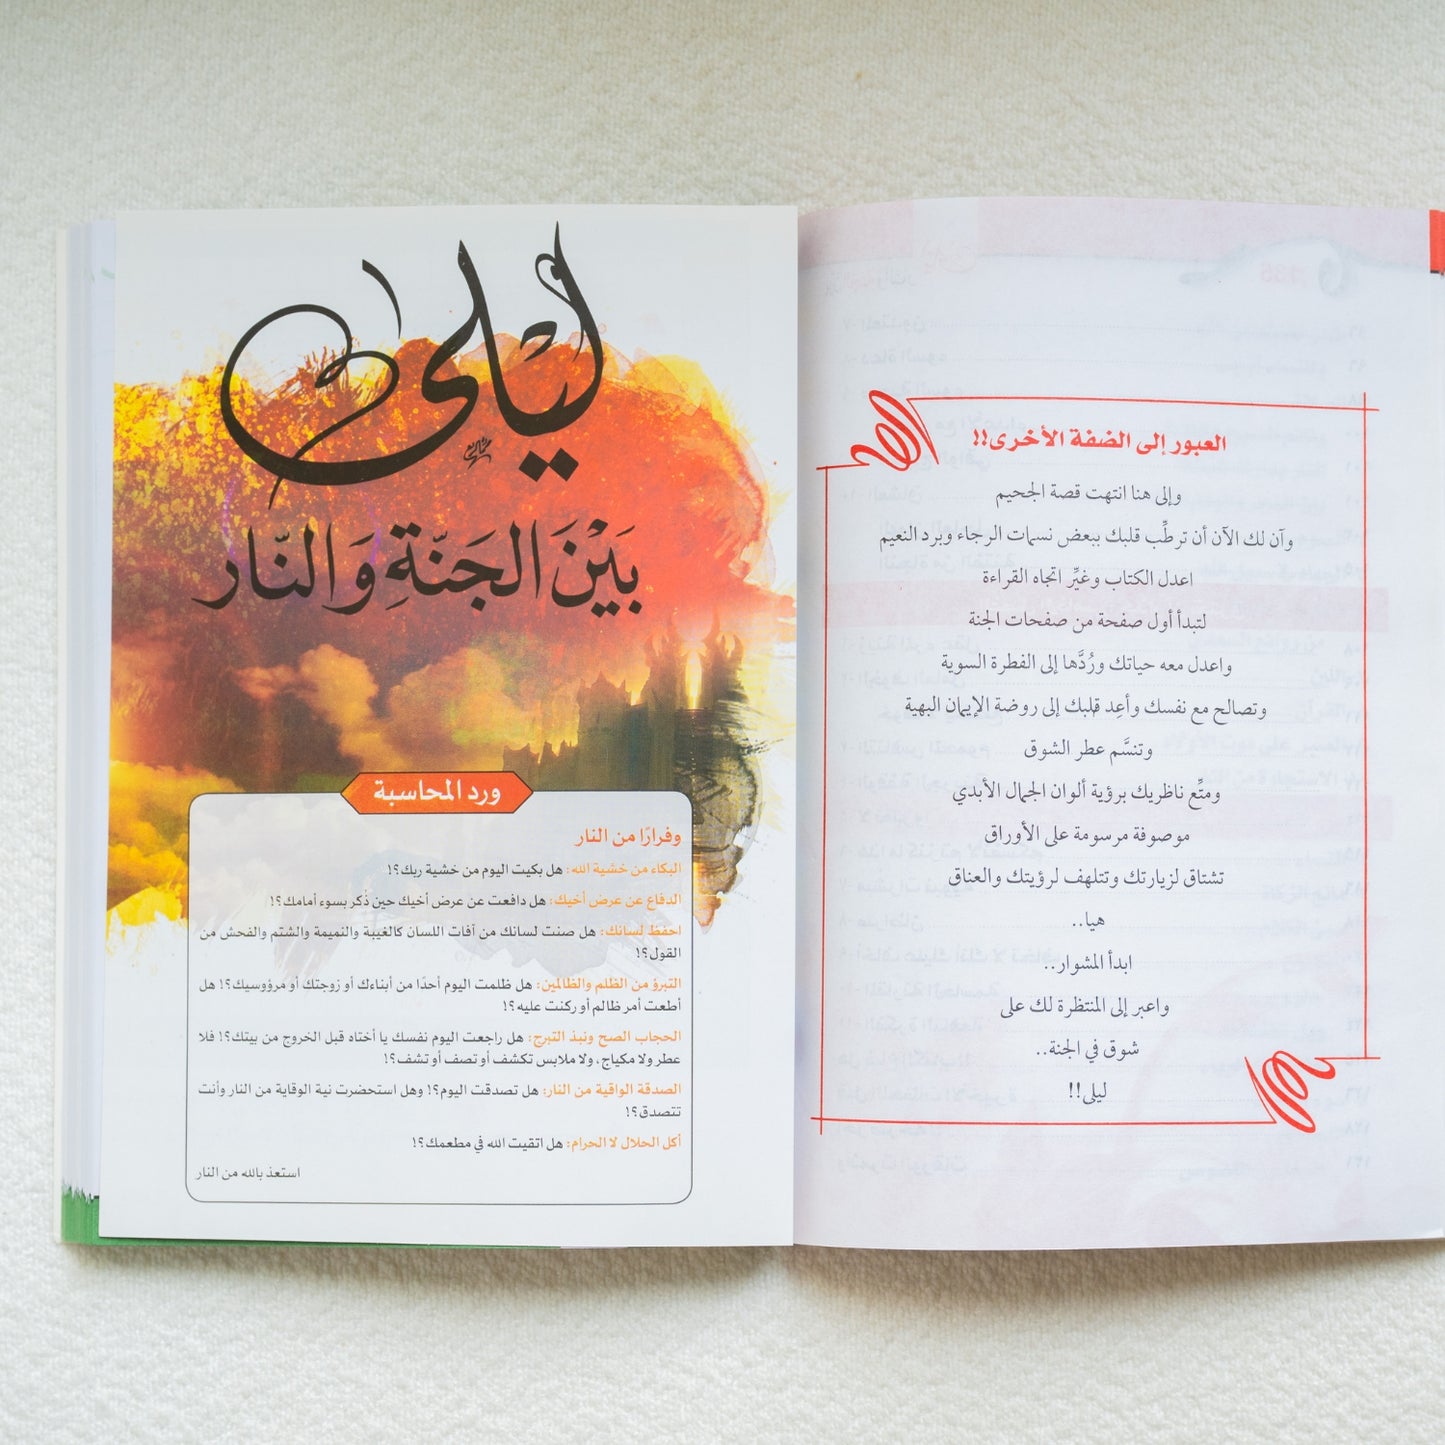 العبور إلى الضفة الأخرى!!
وإلى هنا انتهت قصة الجحيم
وآن لك الآن أن ترطِّب قلبك ببعض نسمات الرجاء وبرد النعيم
اعدل الكتاب وغيِّر اتجاه القراءة
لتبدأ أول صفحة من صفحات الجنة
واعدل معه حياتك ورُدَّها إلى الفطرة السوية
وتصالح مع نفسك وأعِد قلبك إلى روضة الإيمان البهية
وتنسَّم عطر الشوق
ومتِّع ناظريك برؤية ألوان الجمال الأبدي
موصوفة مرسومة على الأوراق
تشتاق لزيارتك وتتلهف لرؤيتك والعناق
هيا..
ابدأ المشوار..
واعبر إلى المنتظرة لك على
شوق في الجنة..
ليلى!!
ليلى
بَيْنَ الجَنّةِ وَالنّار
ورد المحاسبة
وفرارًا من النار
البكاء من خشية الله: هل بكيت اليوم من خشية ربك؟!
الدفاع عن عرض أخيك: هل دافعت عن عرض أخيك حين ذُكر بسوء أمامك؟!
احفظ لسانك: هل صنت لسانك من آفات اللسان كالغيبة والنميمة والشتم والفحش من
القول؟!
التبرؤ من الظلم والظالمين: هل ظلمت اليوم أحدًا من أبناءك أو زوجتك أو مرؤوسيك؟! هل
أطعت أمر ظالم أو ركنت عليه؟!
الحجاب الصح ونبذ التبرج: هل راجعت اليوم نفسك يا أختاه قبل الخروج من بيتك؟! فلا
عطر ولا مكياج، ولا ملابس تكشف أو تصف أو تشف؟!
الصدقة الواقية من النار: هل تصدقت اليوم؟! وهل استحضرت نية الوقاية من النار وأنت
تتصدق؟!
أكل الحلال لا الحرام: هل اتقيت الله في مطعمك؟!
استعذ بالله من النار